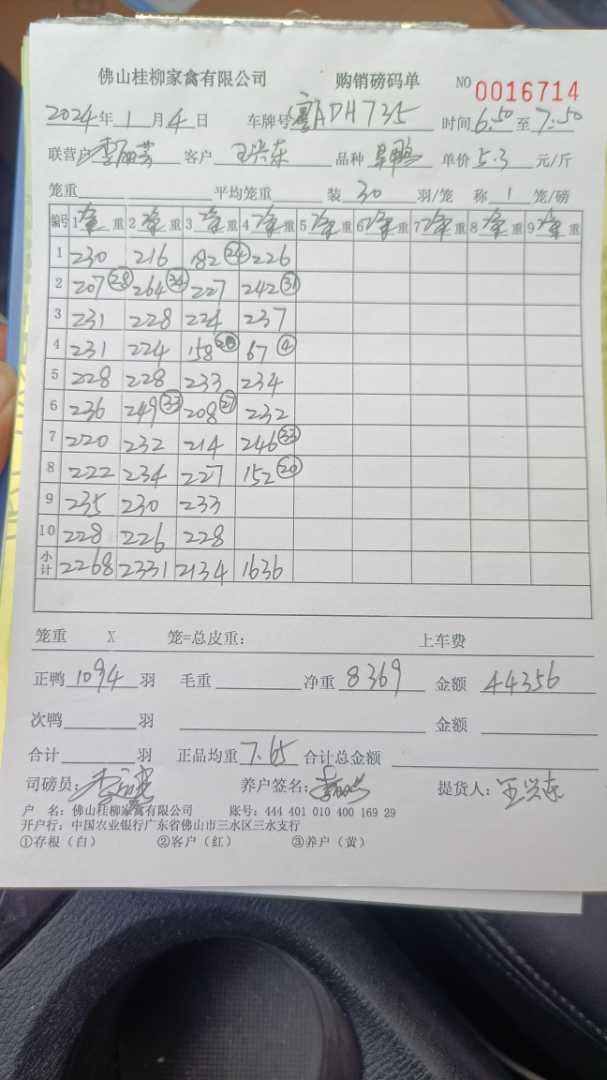 佛山桂柳家禽有限公司 购销磅码单 NO 0016714
2024年1月4日 车牌号 粤ADH735 时间6.50至7.50
联营户 客户 王兴东 品种 单价5.3元/斤
笼重 平均笼重 装30羽/笼 称1笼/磅
编号 1净重 2净重 3净重 4净重 5净重 6净重 7净重 8净重 9净重
1 230 216 182 (24) 226
2 207 (28) 264 (34) 227 242 (31)
3 231 228 224 237
4 231 224 158 (20) 67 (9)
5 228 228 233 234
6 236 249 (33) 208 (27) 232
7 220 232 214 246 (33)
8 222 234 227 152 (20)
9 235 230 233
10 228 226 228
小计 2268 2331 2134 1636
笼重 X 笼=总皮重： 上车费
正鸭1094羽 毛重 净重8369 金额44356
次鸭 羽 金额
合计 羽 正品均重7.65 合计总金额
司磅员： 养户签名： 提货人：王兴东
户 名：佛山桂柳家禽有限公司 账号：444 401 010 400 169 29
开户行：中国农业银行广东省佛山市三水区三水支行
①存根（白） ②客户（红） ③养户（黄）